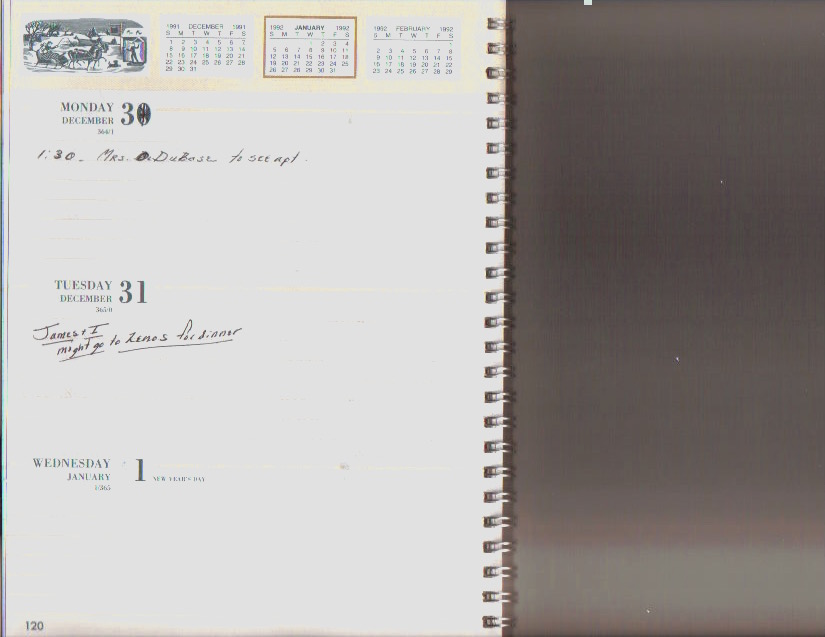 1991 DECEMBER 1991
S M T W T F S
1 2 3 4 5 6 7
8 9 10 11 12 13 14
15 16 17 18 19 20 21
22 23 24 25 26 27 28
29 30 31
1992 JANUARY 1992
S M T W T F S
1 2 3 4
5 6 7 8 9 10 11
12 13 14 15 16 17 18
19 20 21 22 23 24 25
26 27 28 29 30 31
1992 FEBRUARY 1992
S M T W T F S
1
2 3 4 5 6 7 8
9 10 11 12 13 14 15
16 17 18 19 20 21 22
23 24 25 26 27 28 29
MONDAY 30
DECEMBER
364/1
1:30 - Mrs. DuBase to see apt.
TUESDAY 31
DECEMBER
365/0
James & I
might go to Zenos for dinner
WEDNESDAY 1 NEW YEAR'S DAY
JANUARY
1/365
120